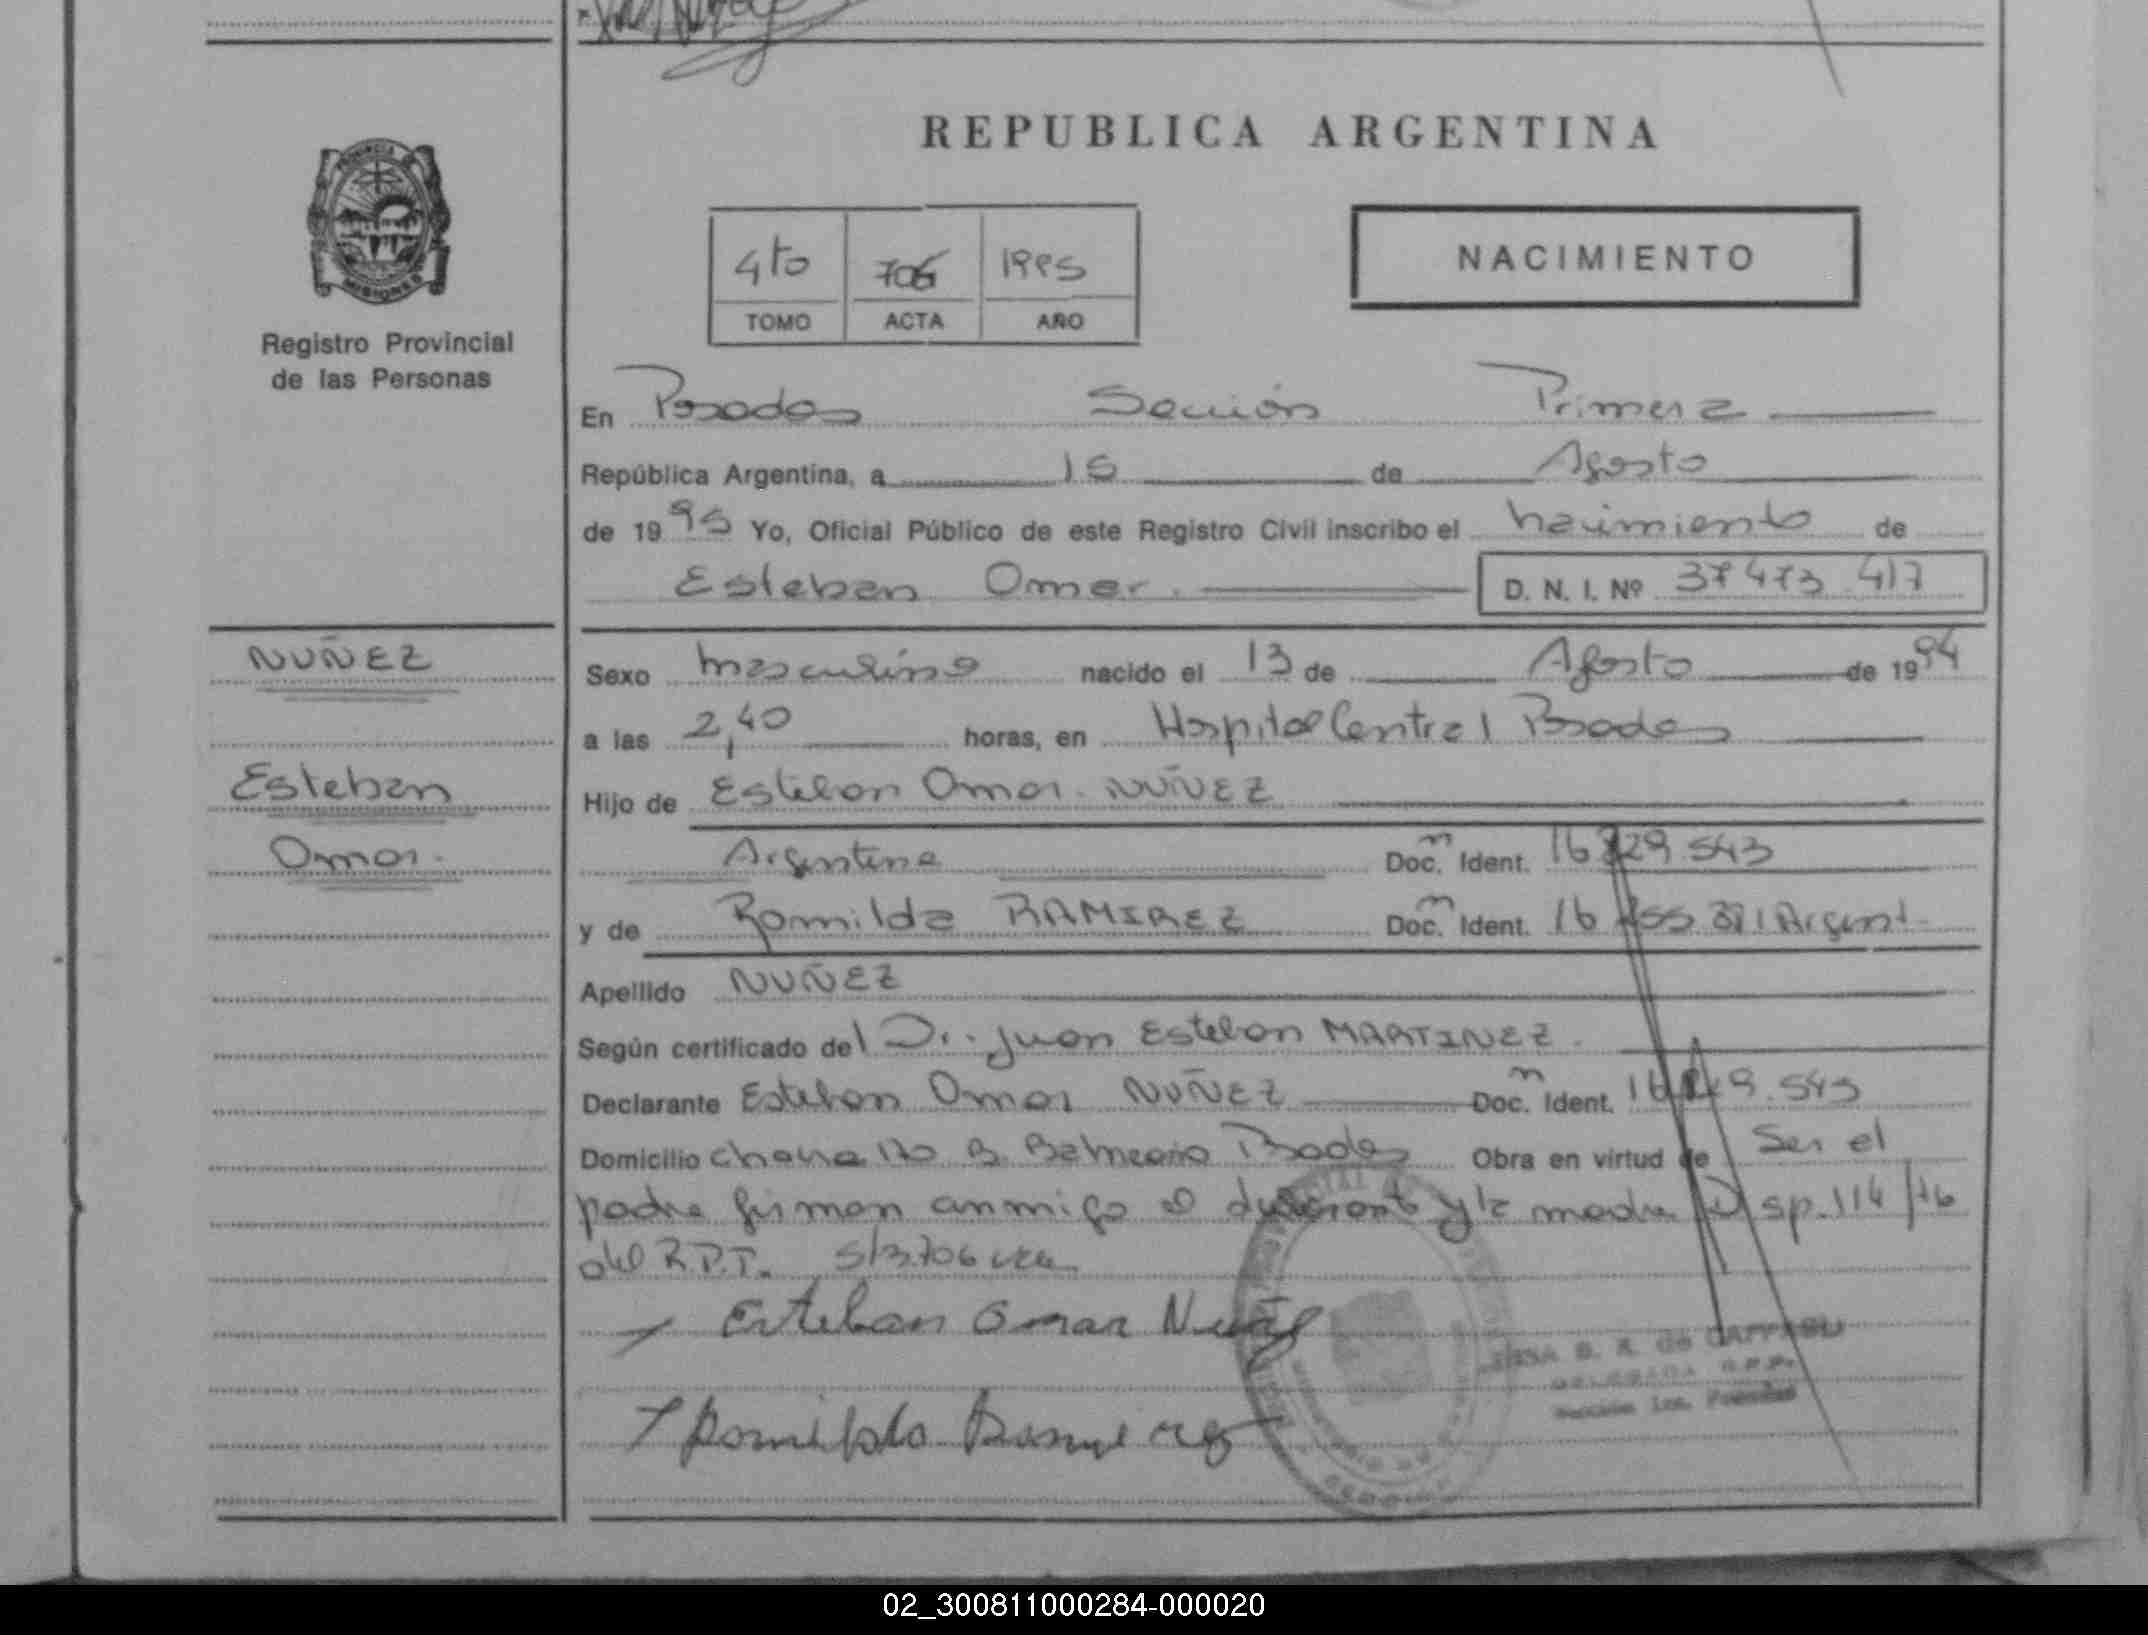 REPUBLICA ARGENTINA
PROVINCIA
MISIONES
Registro Provincial
de las Personas
4to 706 1995
TOMO ACTA AÑO
NACIMIENTO
En Posadas Sección Primera
República Argentina, a 15 de Agosto
de 1995 Yo, Oficial Público de este Registro Civil inscribo el nacimiento de
Esteban Omar. D. N. I. Nº 37 473 417
NUÑEZ
Esteban
Omar.
Sexo masculino nacido el 13 de Agosto de 1994
a las 2,40 horas, en Hospital Central Posadas
Hijo de Esteban Omar NUÑEZ
Argentina Doc. Ident. 16 829.543
y de Romilda RAMIREZ Doc. Ident. 16 Argent.
Apellido NUÑEZ
Según certificado del Dr. Juan Esteban MARTINEZ.
Declarante Esteban Omar NUÑEZ Doc. Ident. 16 829.543
Domicilio chacra 170 B. Balneario Posadas Obra en virtud de Ser el
padre firman conmigo el declarante y la madre Disp. 114/76
del R.P.P. S/R 706 vale
Esteban Omar Nuñez
Romilda Ramirez
B. R. de
DELEGADA R.P.P.
Sección 1ra. Posadas
02_300811000284-000020